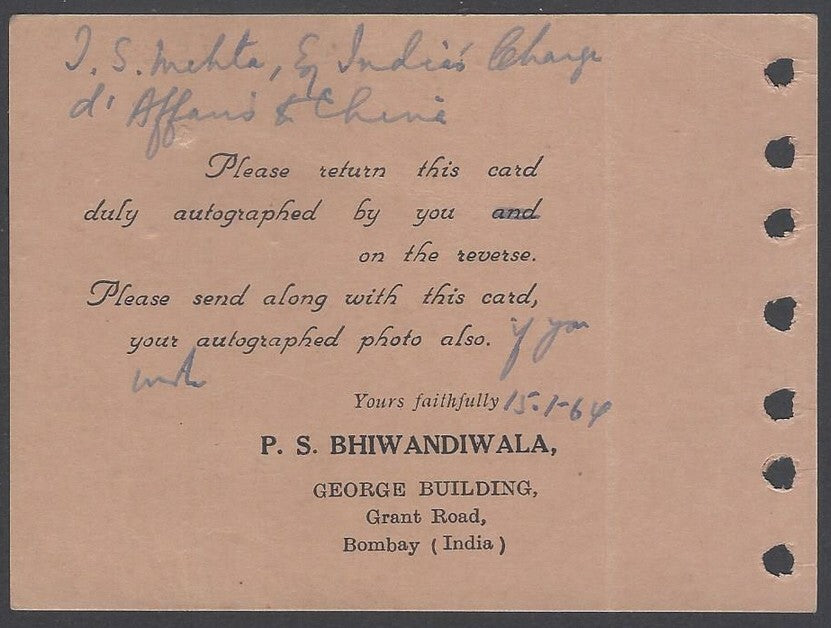 J. S. Mehta, Ex India's Charge
d' Affairs to China
Please return this card
duly autographed by you and
on the reverse.
Please send along with this card,
your autographed photo also. if you
wish
Yours faithfully 15.1-64
P. S. BHIWANDIWALA,
GEORGE BUILDING,
Grant Road,
Bombay (India)